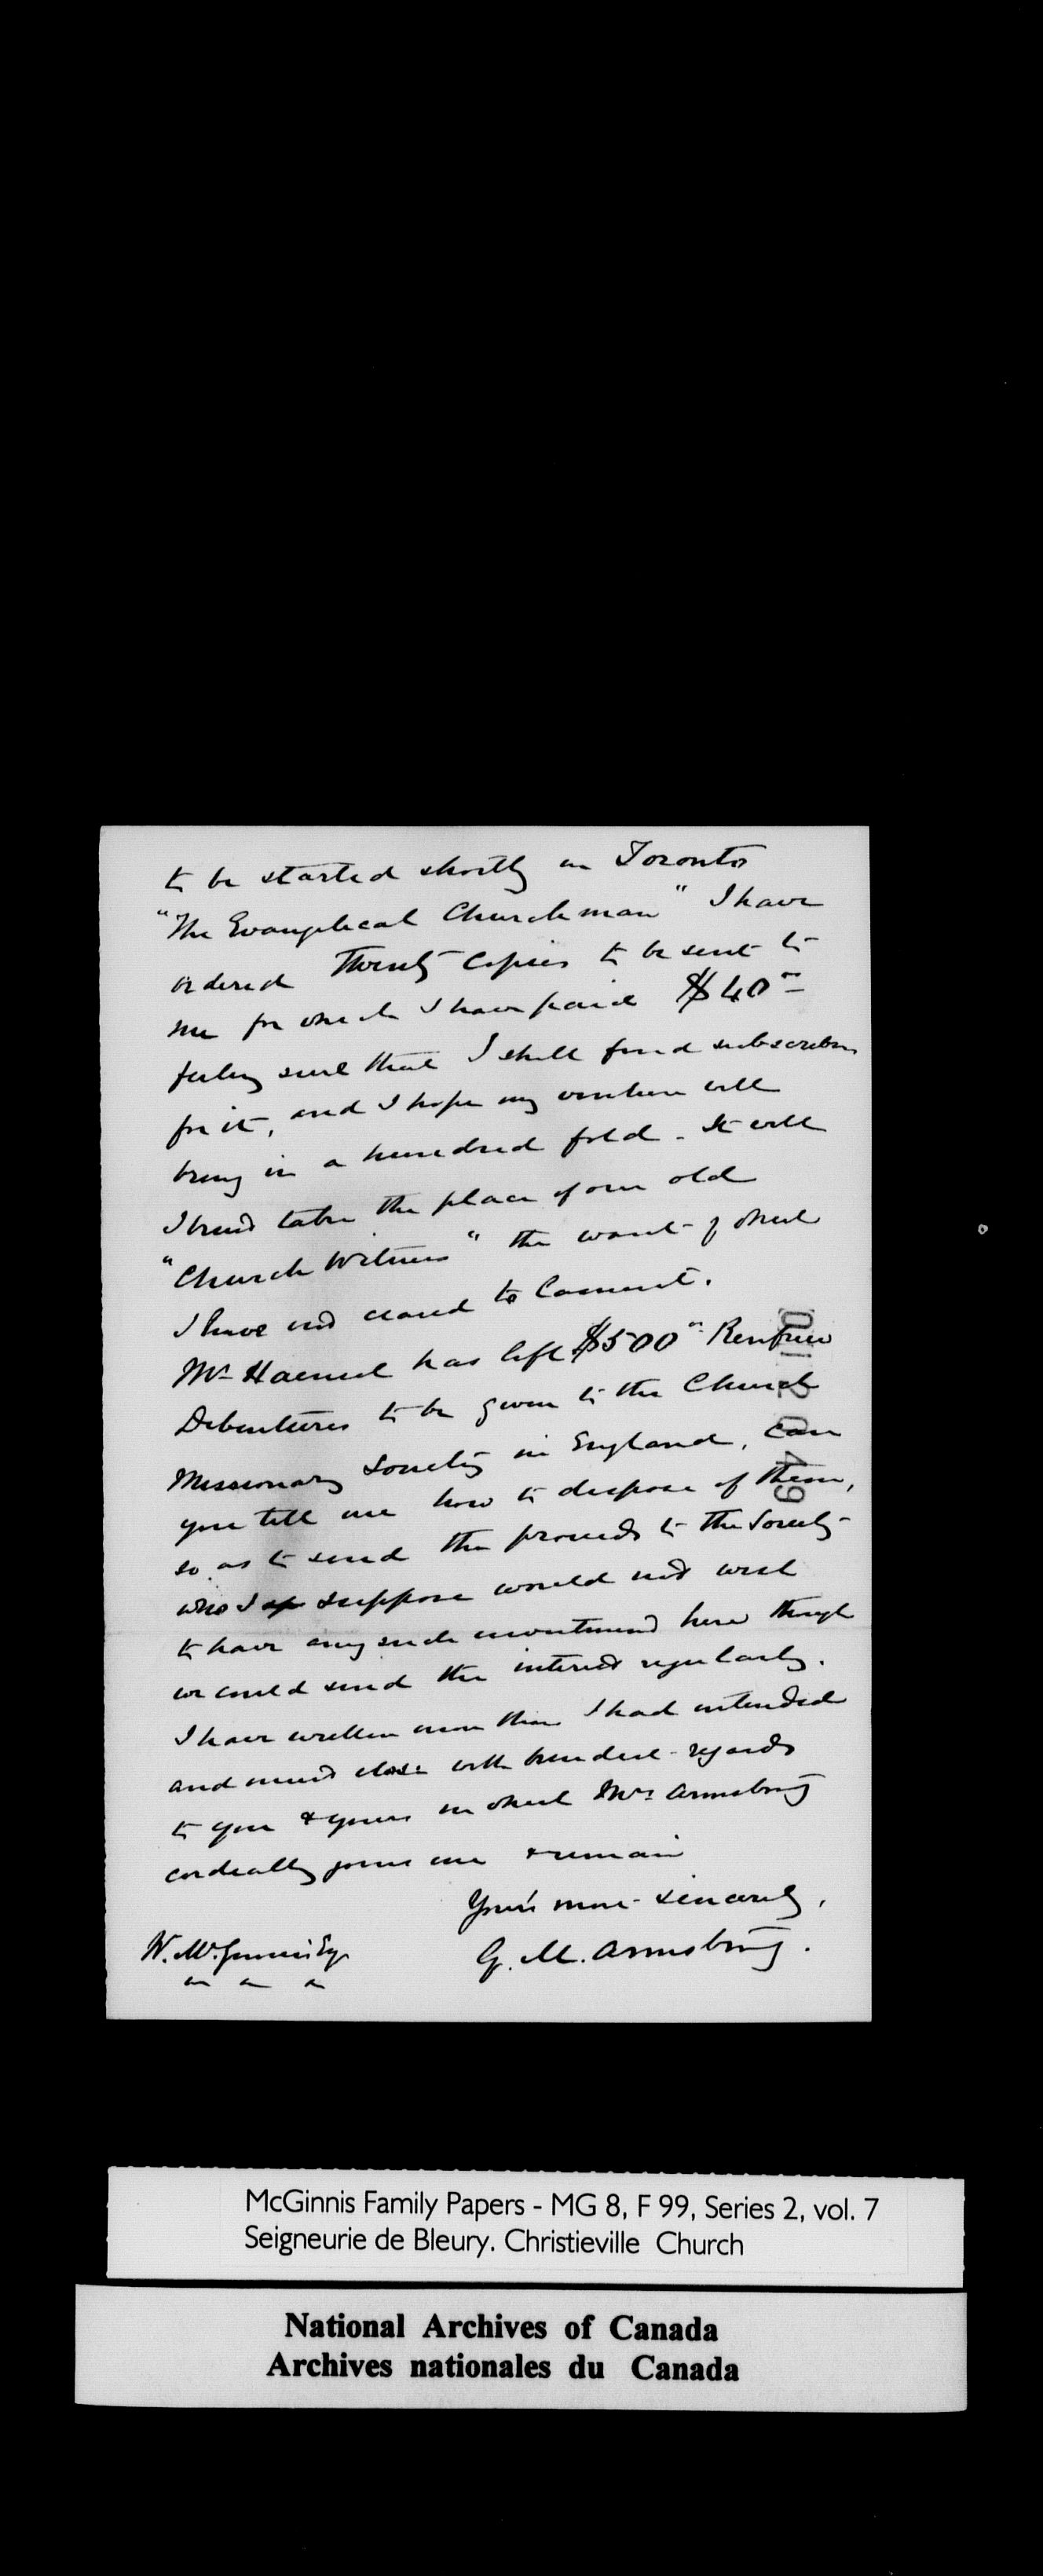 to be started shortly in Toronto
"The Evangelical Churchman" I have
ordered Twenty copies to be sent to
me for which I have paid $40 00
feeling sure that I shall find subscribers
for it, and I hope my venture will
bring in a hundred fold - It will
I trust take the place of our old
"Church Witness" the want of which
I have not ceased to lament.
Mr has left $500 00 Renfrew
Debentures to be given to the Church
Missionary Society in England, can
you tell me how to dispose of them,
so as to send the proceeds to the Society
who I suppose would not wish
to have any such investment here though
we could send the interest regularly.
I have written more than I had intended
and must close with kindest regards
to you & yours in which Mrs Armstrong
cordially joins me & remain
Yours most sincerely,
W. McGinnis Esq G. M. Armstrong.
McGinnis Family Papers - MG 8, F 99, Series 2, vol. 7
Seigneurie de Bleury. Christieville Church
National Archives of Canada
Archives nationales du Canada